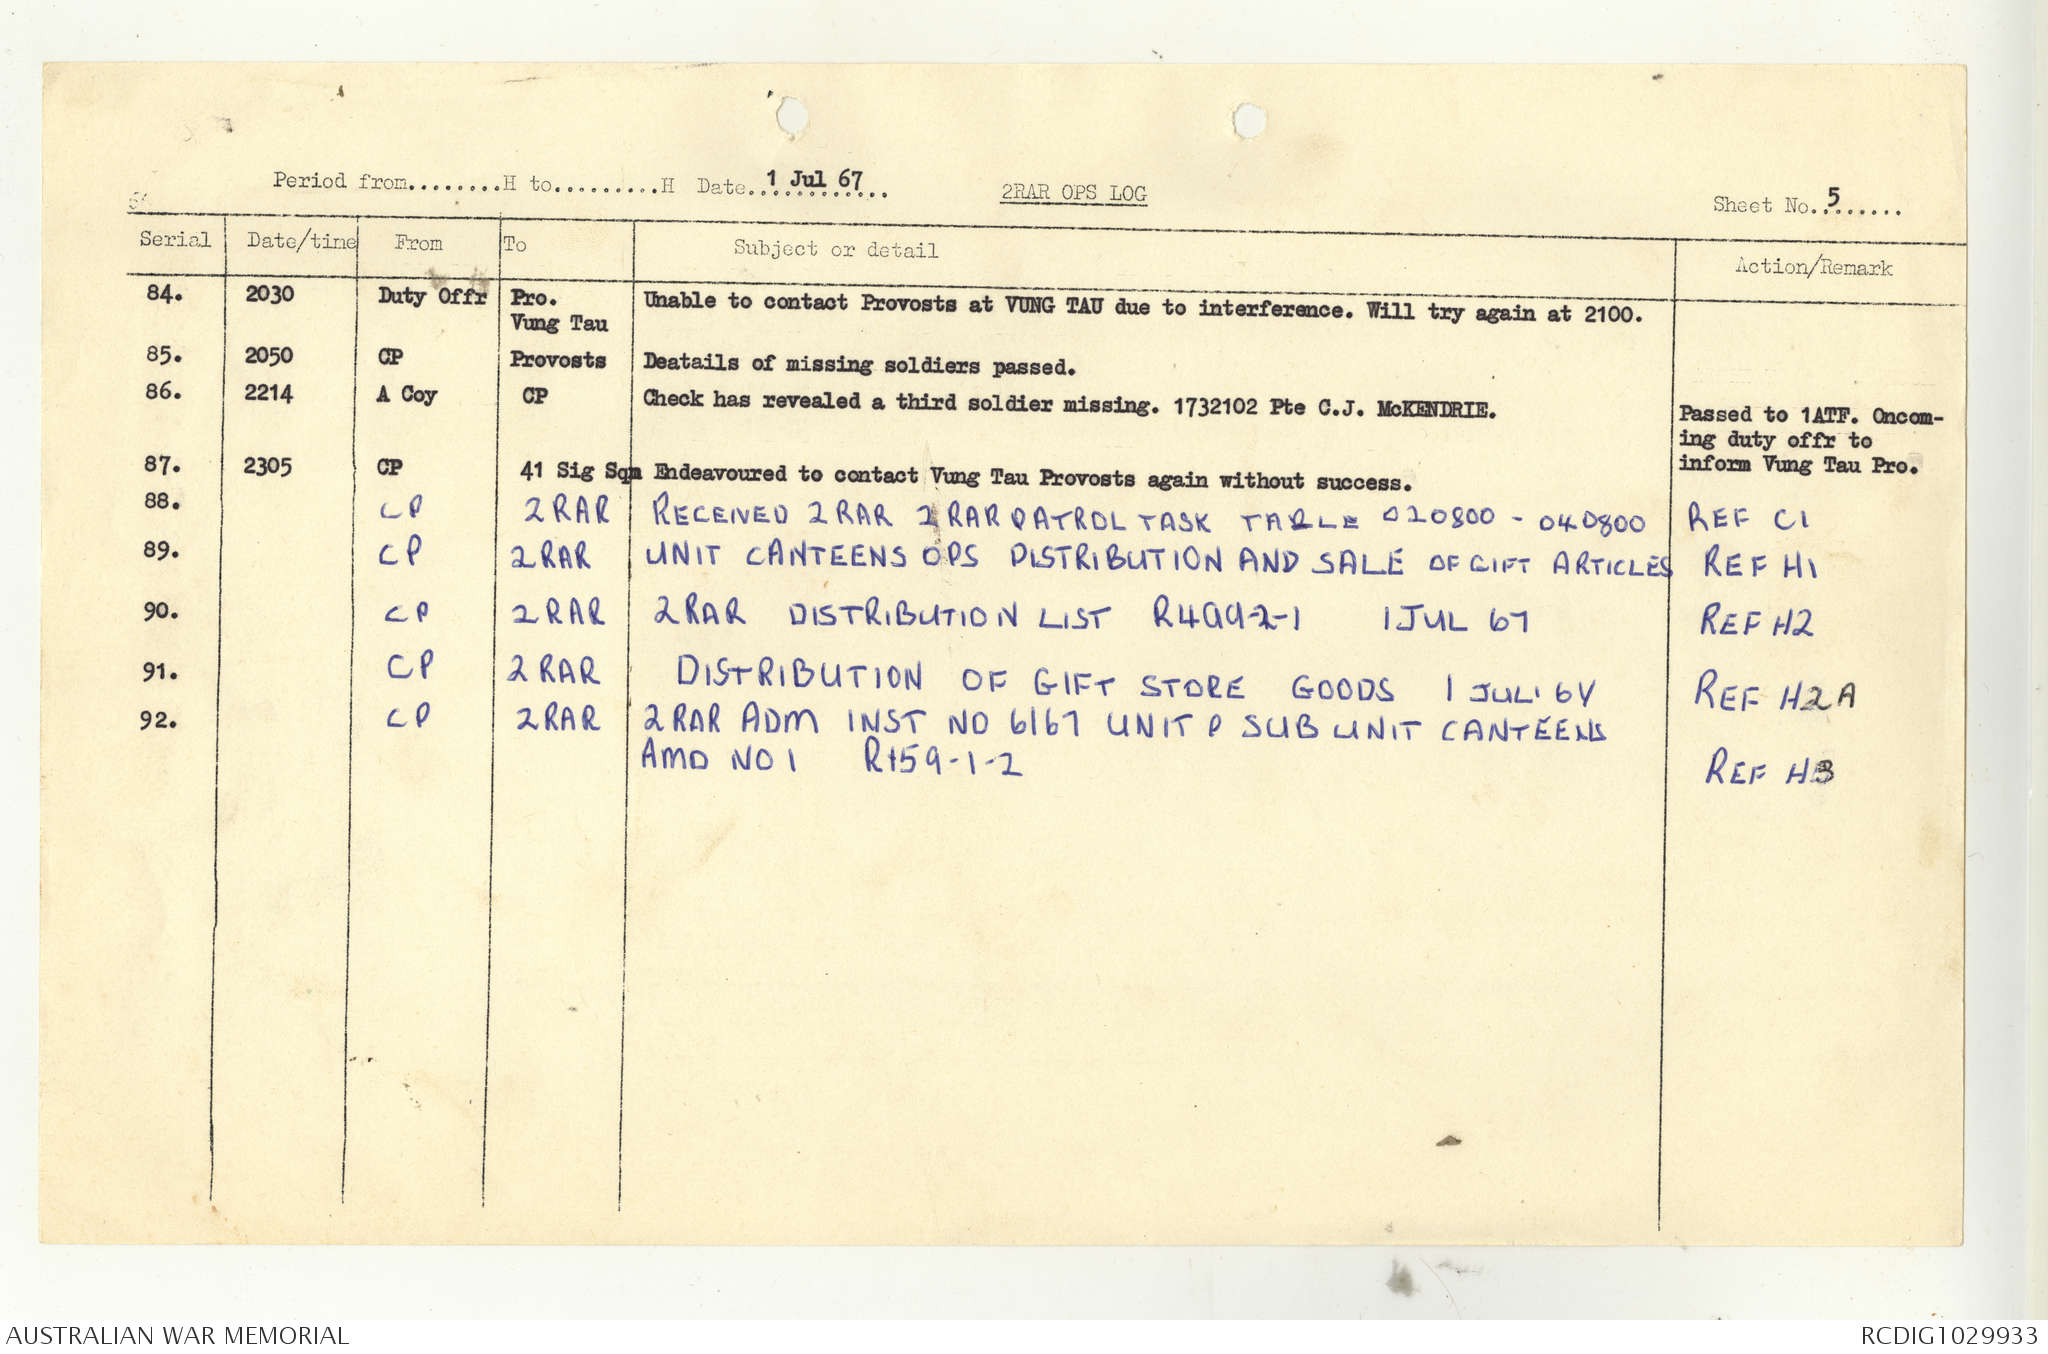 Period from........H to..........H Date 1 Jul 67 2RAR OPS LOG Sheet No. 5
Serial Date/time From To Subject or detail Action/Remark
84. 2030 Duty Offr Pro. Unable to contact Provosts at VUNG TAU due to interference. Will try again at 2100.
Vung Tau
85. 2050 CP Provosts Deatails of missing soldiers passed.
86. 2214 A Coy CP Check has revealed a third soldier missing. 1732102 Pte C.J. McKENDRIE. Passed to 1ATF. Oncom-
ing duty offr to
inform Vung Tau Pro.
87. 2305 CP 41 Sig Sqn Endeavoured to contact Vung Tau Provosts again without success.
88. CP 2RAR RECEIVED 2RAR 2RAR PATROL TASK TABLE 020800 - 040800 REF C1
89. CP 2RAR UNIT CANTEENS OPS DISTRIBUTION AND SALE OF GIFT ARTICLES REF H1
90. CP 2RAR 2RAR DISTRIBUTION LIST R499-2-1 1 JUL 67 REF H2
91. CP 2RAR DISTRIBUTION OF GIFT STORE GOODS 1 JUL 67 REF H2A
92. CP 2RAR 2RAR ADM INST NO 6/67 UNIT P SUB UNIT CANTEENS
AMD NO 1 R459-1-2 REF H3
AUSTRALIAN WAR MEMORIAL RCDIG1029933